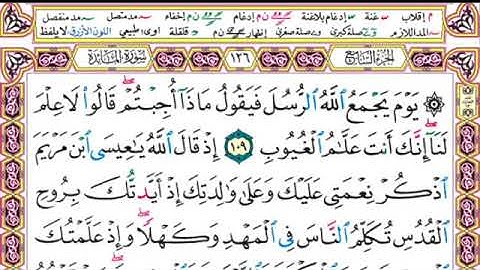 م إقلاب ~ غنة ~ إدغام بلاغنة ن م إدغام ن م إخفاء ~ مد متصل ~ مد منفصل
المد اللازم ~ صلة كبرى ~ وصلة صغرى إظهار ن م ~ قلقلة اوى: طبيعي اللون الأزرق: لا يلفظ
الجزء السابع ١٢٦ سورة المائدة
۞ يَوْمَ يَجْمَعُ اللَّهُ الرُّسُلَ فَيَقُولُ مَاذَا أُجِبْتُمْ قَالُوا لَا عِلْمَ
لَنَا إِنَّكَ أَنتَ عَلَّامُ الْغُيُوبِ ١٠٩ إِذْ قَالَ اللَّهُ يَا عِيسَى ابْنَ مَرْيَمَ
اذْكُرْ نِعْمَتِي عَلَيْكَ وَعَلَى وَالِدَتِكَ إِذْ أَيَّدتُّكَ بِرُوحِ
الْقُدُسِ تُكَلِّمُ النَّاسَ فِي الْمَهْدِ وَكَهْلًا وَإِذْ عَلَّمْتُكَ